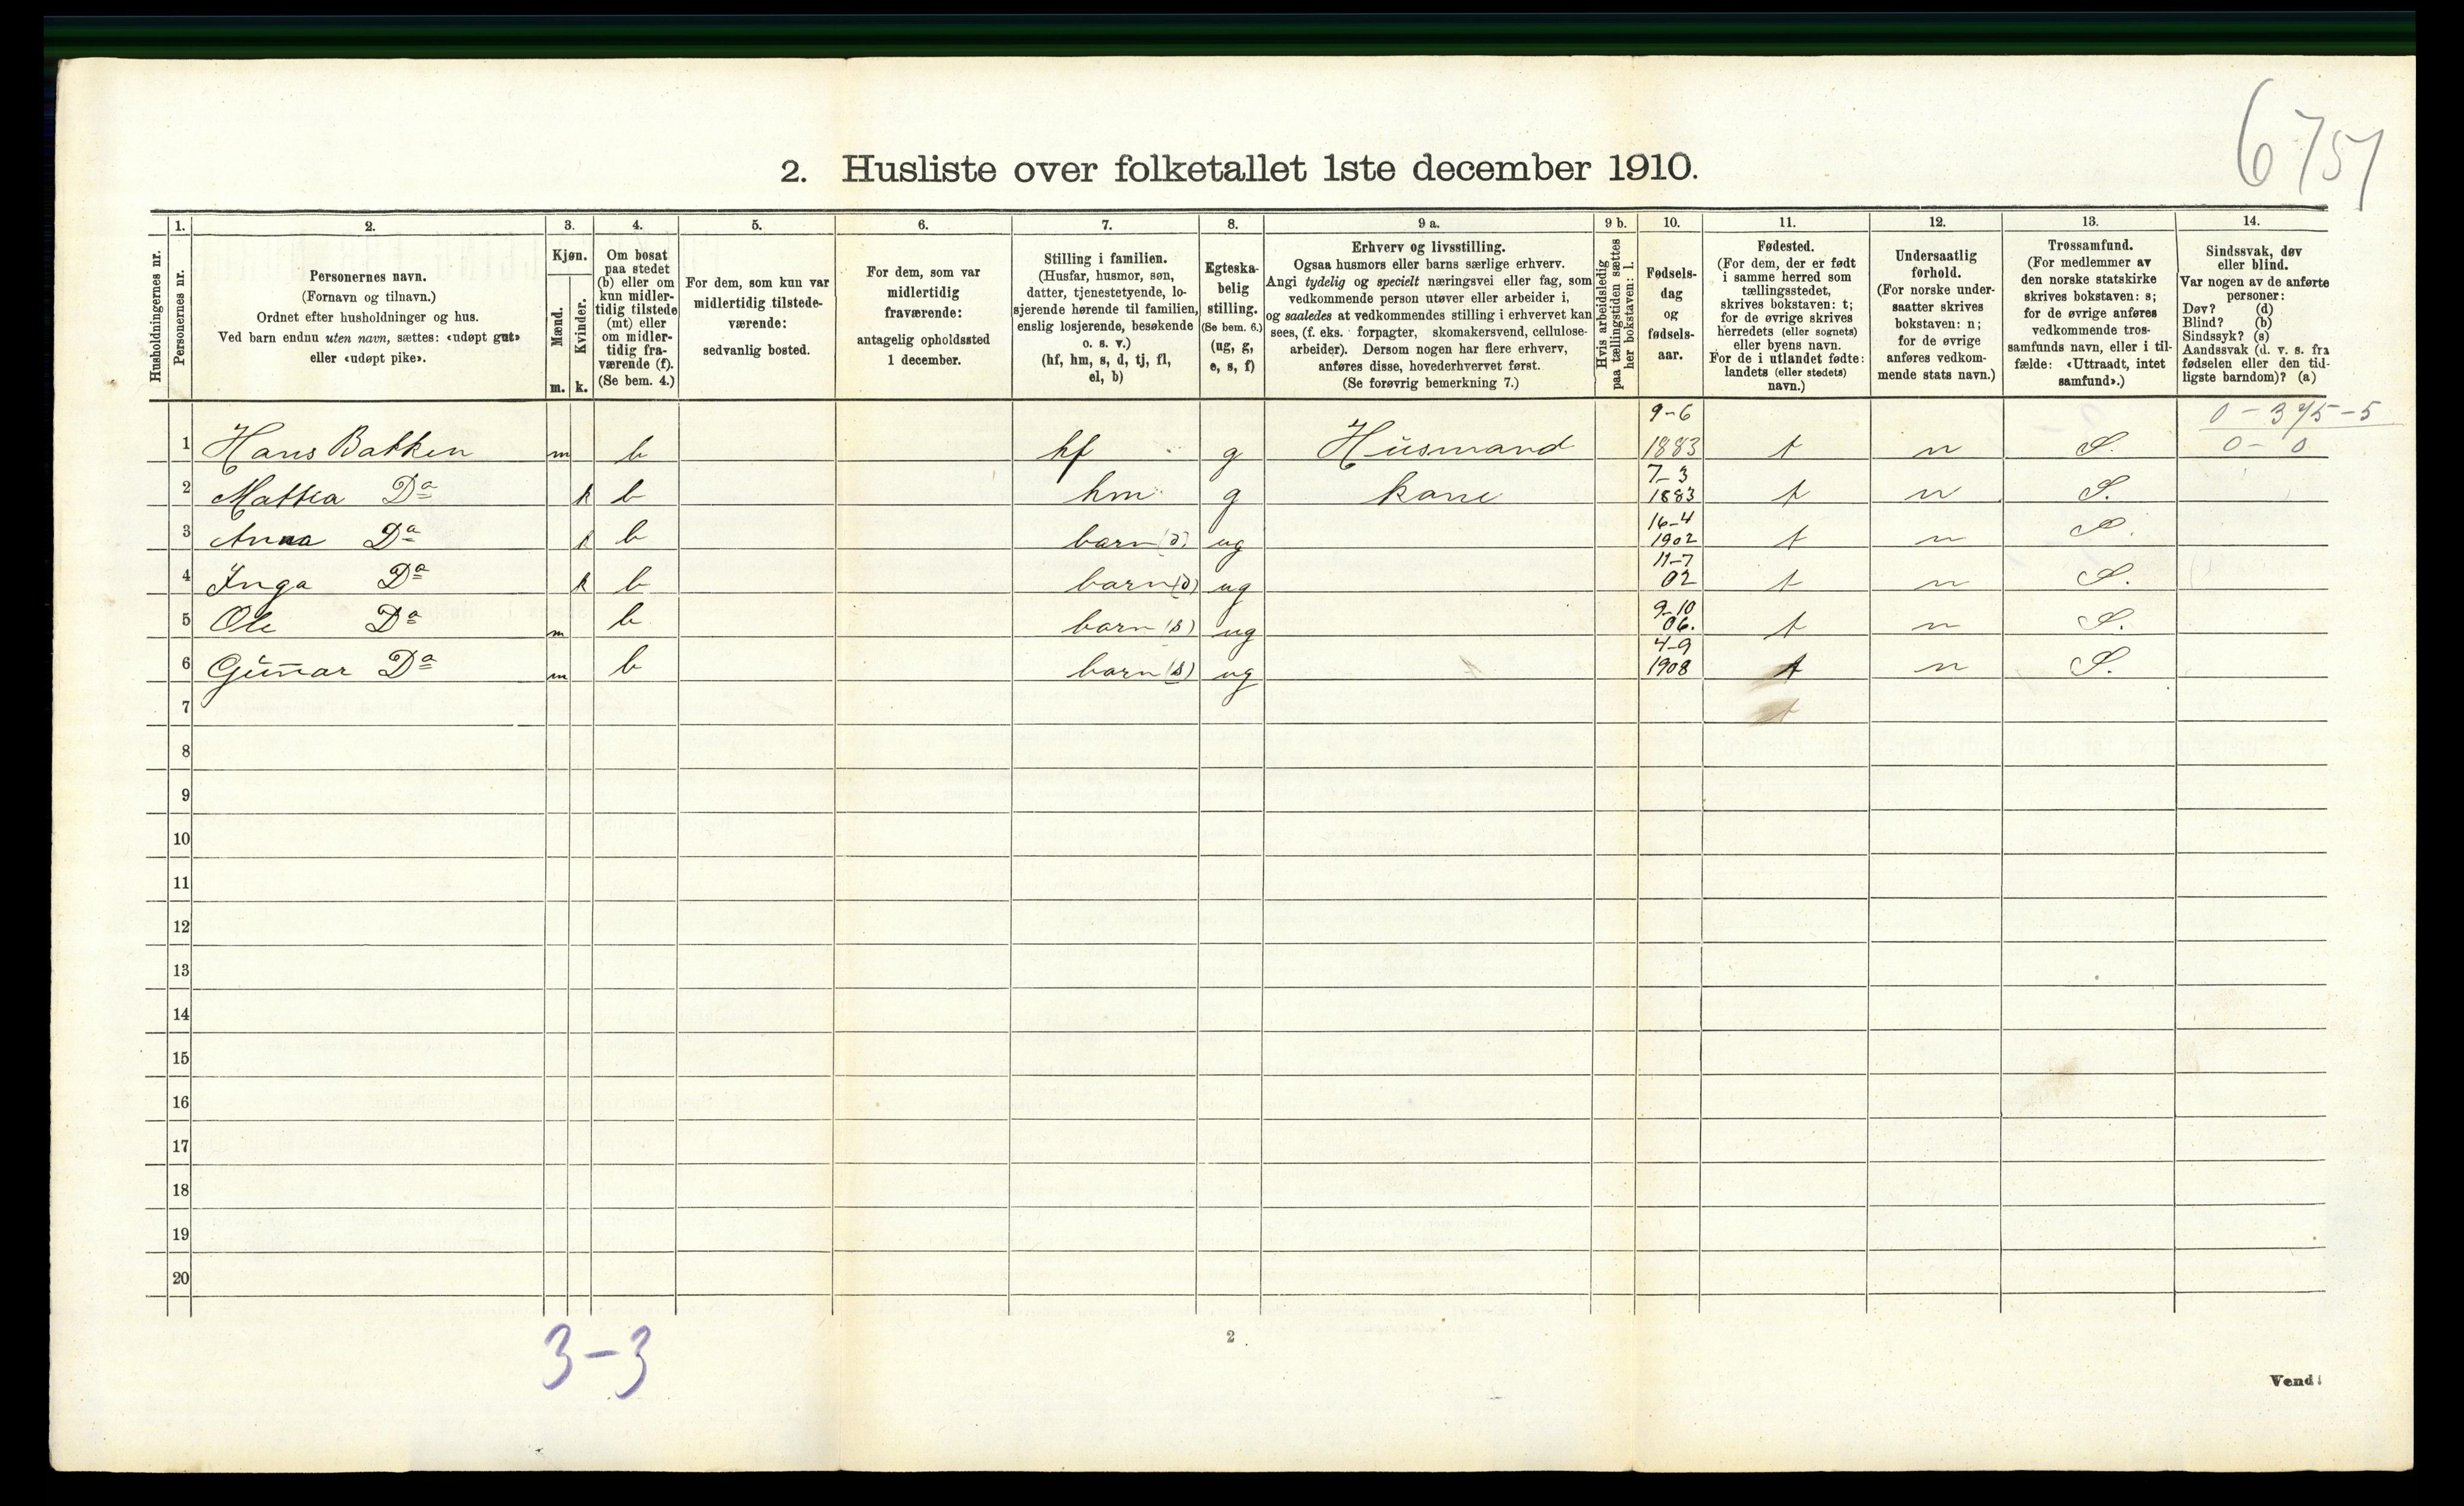 6751
2. Husliste over folketallet 1ste december 1910.
Husholdningernes nr.
1. Personernes nr.
2. Personernes navn.
(Fornavn og tilnavn.)
Ordnet efter husholdninger og hus.
Ved barn endnu uten navn, sættes: «udøpt gut»
eller «udøpt pike».
3. Kjøn.
Mænd. m.
Kvinder. k.
4. Om bosat
paa stedet
(b) eller om
kun midler-
tidig tilstede
(mt) eller
om midler-
tidig fra-
værende (f).
(Se bem. 4.)
5. For dem, som kun var
midlertidig tilstede-
værende:
sedvanlig bosted.
6. For dem, som var
midlertidig
fraværende:
antagelig opholdssted
1 december.
7. Stilling i familien.
(Husfar, husmor, søn,
datter, tjenestetyende, lo-
sjerende hørende til familien,
enslig losjerende, besøkende
o. s. v.)
(hf, hm, s, d, tj, fl,
el, b)
8. Egteska-
belig
stilling.
(Se bem. 6.)
(ug, g,
e, s, f)
9 a. Erhverv og livsstilling.
Ogsaa husmors eller barns særlige erhverv.
Angi tydelig og specielt næringsvei eller fag, som
vedkommende person utøver eller arbeider i,
og saaledes at vedkommendes stilling i erhvervet kan
sees, (f. eks. forpagter, skomakersvend, cellulose-
arbeider). Dersom nogen har flere erhverv,
anføres disse, hovederhvervet først.
(Se forøvrig bemerkning 7.)
9 b. Hvis arbeidsledig
paa tællingstiden sættes
her bokstaven: l.
10. Fødsels-
dag
og
fødsels-
aar.
11. Fødested.
(For dem, der er født
i samme herred som
tællingsstedet,
skrives bokstaven: t;
for de øvrige skrives
herredets (eller sognets)
eller byens navn.
For de i utlandet fødte:
landets (eller stedets)
navn.)
12. Undersaatlig
forhold.
(For norske under-
saatter skrives
bokstaven: n;
for de øvrige
anføres vedkom-
mende stats navn.)
13. Trossamfund.
(For medlemmer av
den norske statskirke
skrives bokstaven: s;
for de øvrige anføres
vedkommende tros-
samfunds navn, eller i til-
fælde: «Uttraadt, intet
samfund».)
14. Sindssvak, døv
eller blind.
Var nogen av de anførte
personer:
Døv? (d)
Blind? (b)
Sindssyk? (s)
Aandssvak (d. v. s. fra
fødselen eller den tid-
ligste barndom)? (a)
0 - 375 - 5
0 - 0
1 Hans Bakken m b hf g Husmand 9-6 1883 t n S.
2 Mathea Do k b hm g kone 7-3 1883 t n S.
3 Anna Do k b barn (d) ug 16-4 1902 t n S.
4 Inga Do k b barn (d) ug 11-7 02 t n S.
5 Ole Do m b barn (s) ug 9-10 06. t n S.
6 Gunnar Do m b barn (s) ug 4-9 1908 t n S.
7 t
8
9
10
11
12
13
14
15
16
17
18
19
20
3-3
2
Vend!